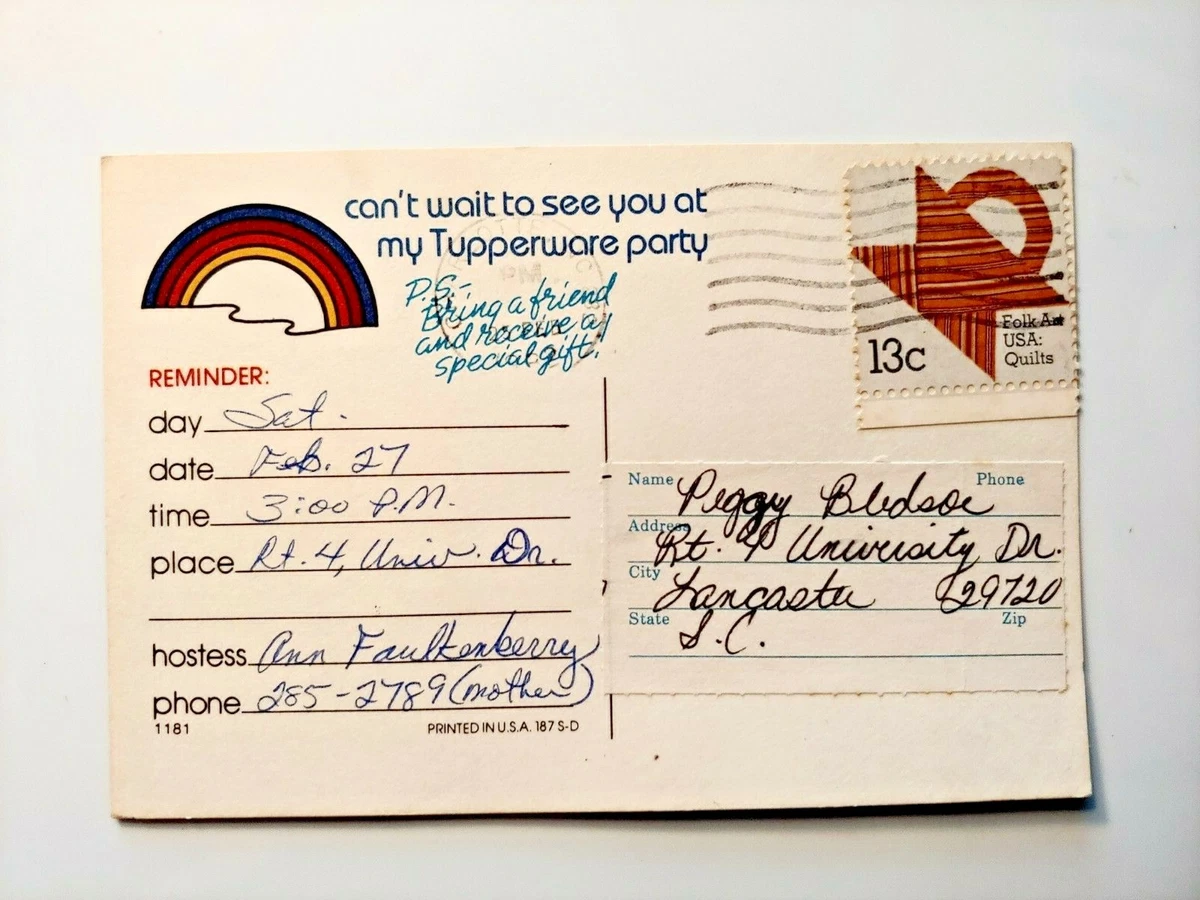 can't wait to see you at
my Tupperware party
P.S.-
Bring a friend
and receive a
special gift!
REMINDER:
day Sat.
date Feb. 27
time 3:00 P.M.
place Rt. 4, Univ. Dr.
hostess Ann Faulkenberry
phone 285-2789 (mother)
1181 PRINTED IN U.S.A. 187 S-D
13c
Folk Art
USA:
Quilts
Name Peggy Bledsoe Phone
Address Rt. 4 University Dr.
City Lancaster 29720
State S.C. Zip